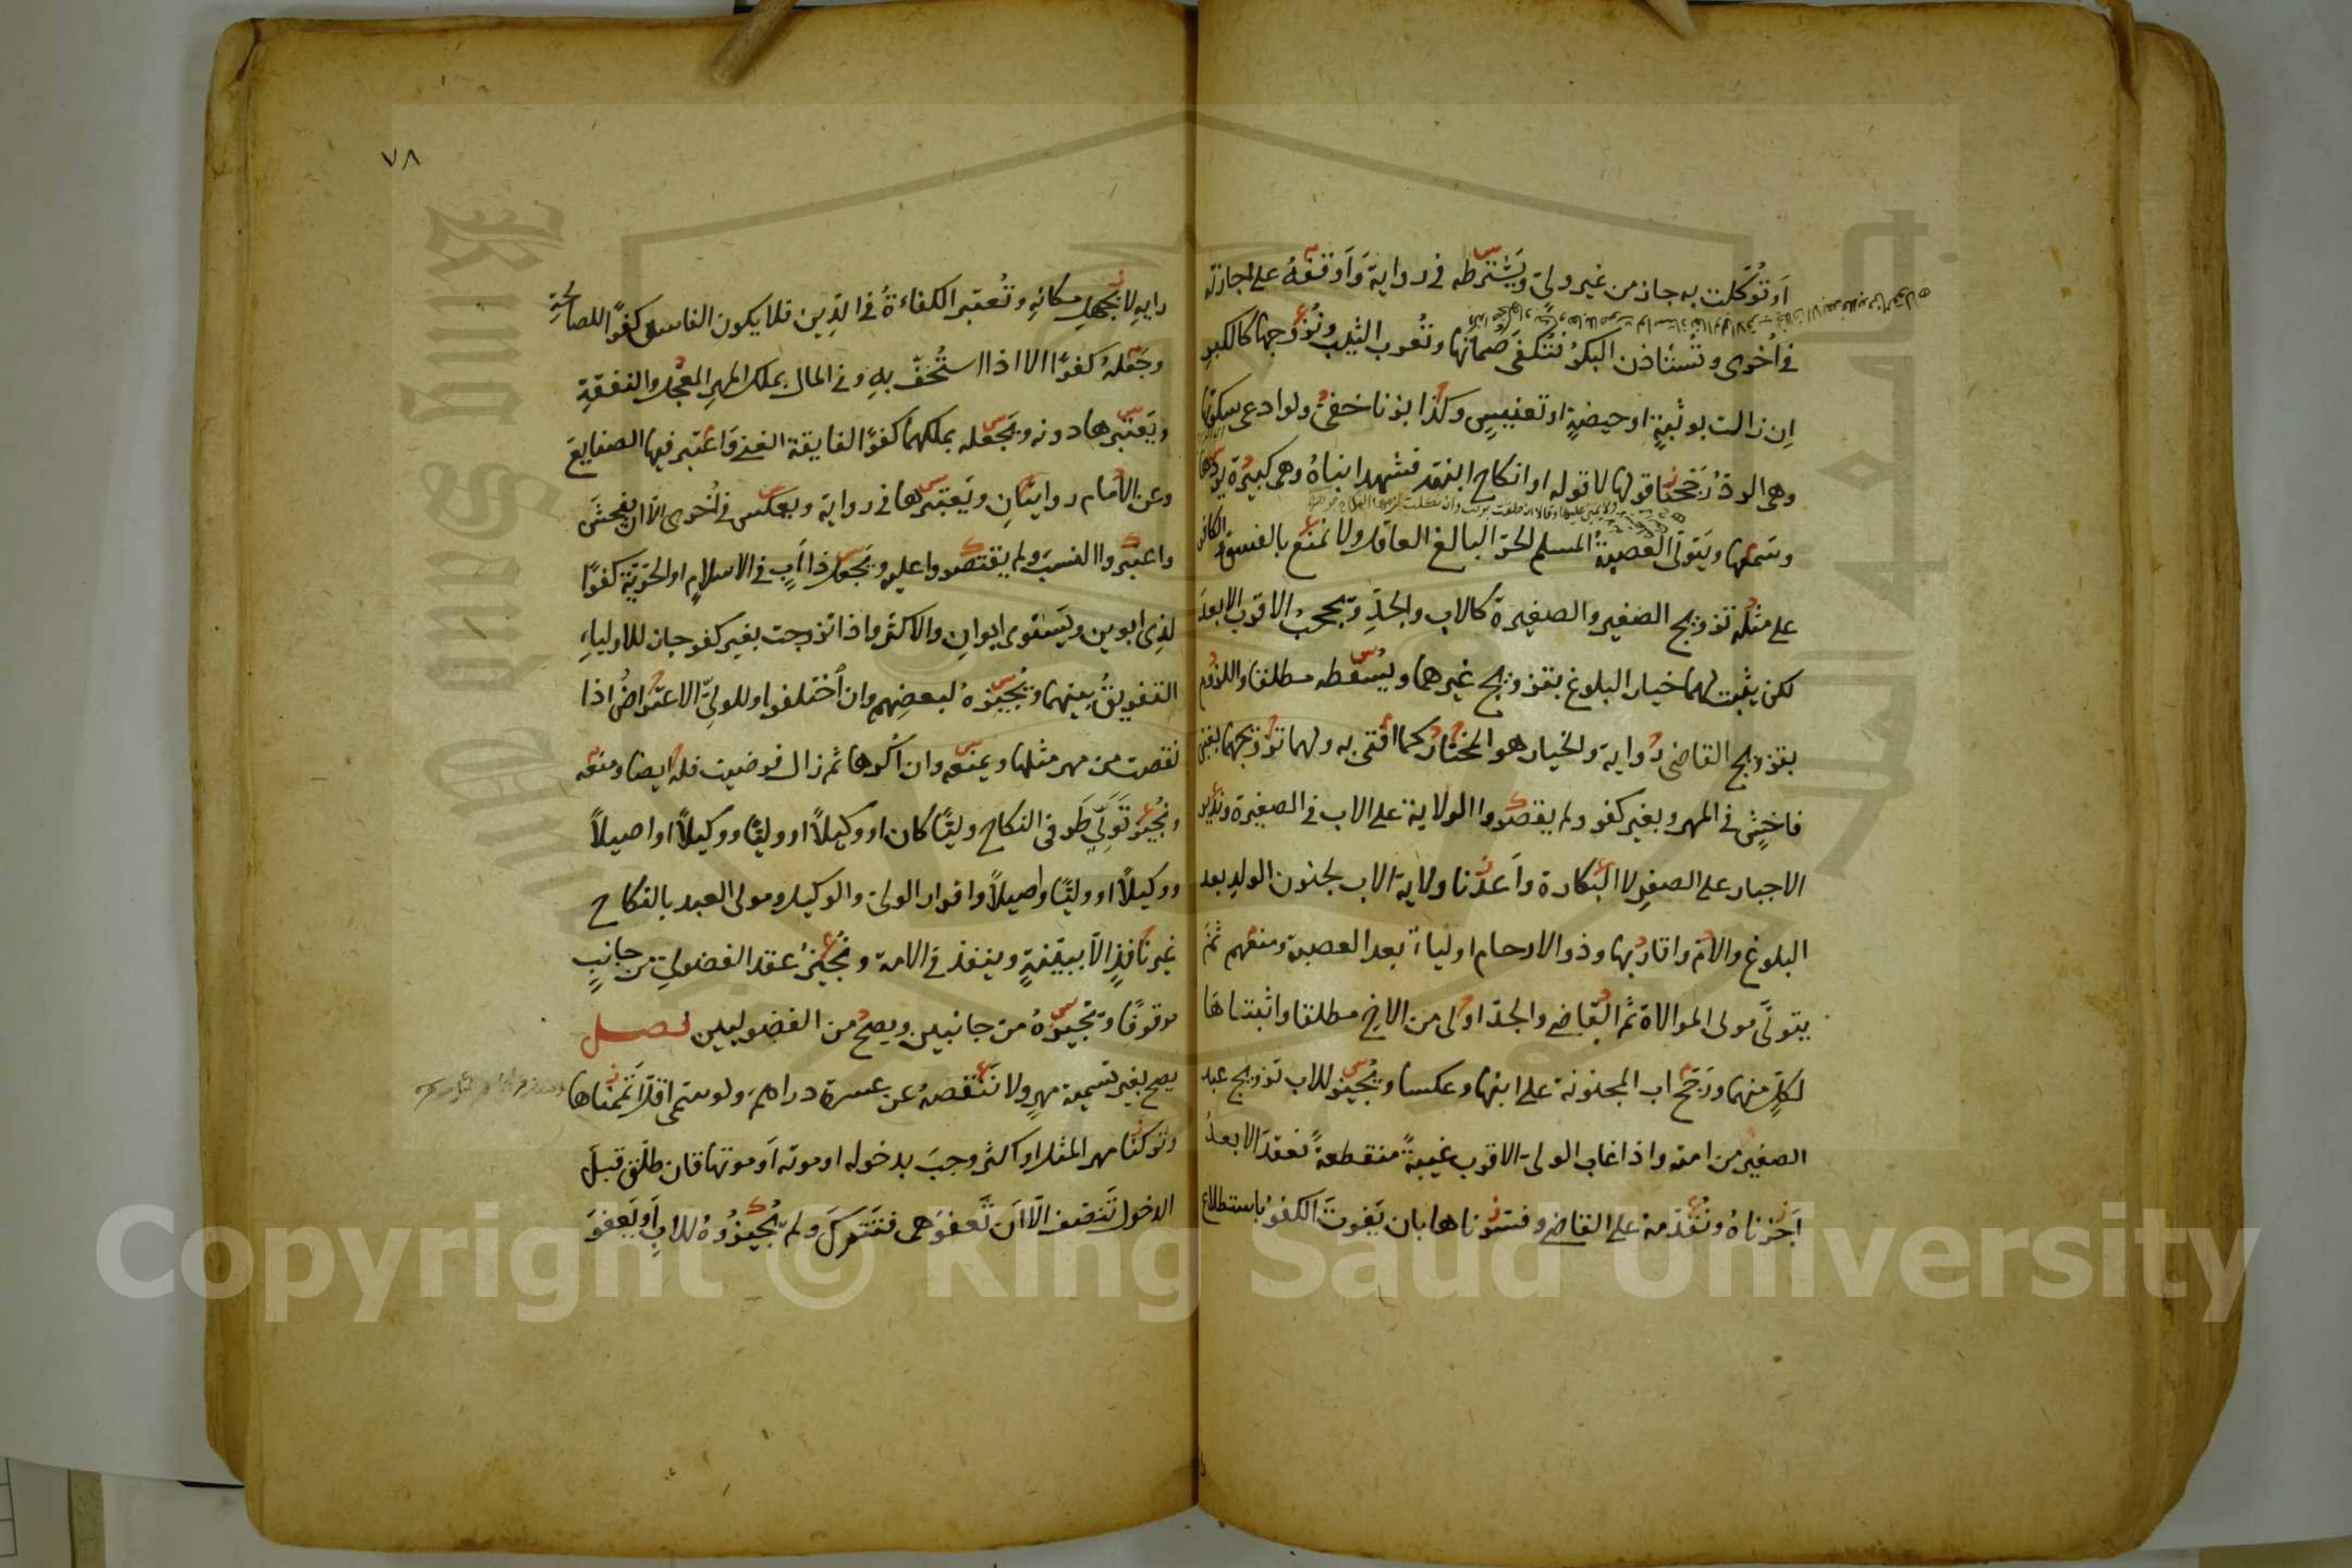 او توكلت به جاز من غير ولي ويشترطه في رواية واوقفه على اجازته
في اخرى وتستأذن البكر فتكفي صماتها وتعرب الثيب ونزوجها كالبكر
ان زالت بوثبة او حيضة او تعنيس وكذا بزنا خفي ولو ادعى سكوتها
وهي الرد رجحنا قولها لا قوله او انكاح ابنته فشهد ابناه وهي كبيرة يردها
وسمعها ويتولى العصبة المسلم الحر البالغ العاقل ولا نمنع بالفسق والكافر
على مثله تزويج الصغير والصغيرة كالاب والجد ويحجب الاقرب الابعد
لكن يثبت لهما خيار البلوغ بتزويج غيرهما ويسقطه مطلقا واللزوم
بتزويج القاضي رواية والخيار هو المختار كما افتى به ولهما تزويجهما بغبن
فاحش في المهر وبغير كفو ولم يقصروا الولاية على الاب في الصغيرة وندير
الاجبار على الصغر لا البكارة واعدنا ولاية الاب لجنون الولد بعد
البلوغ والام واقاربها وذو الارحام اولياء بعد العصبة ومنعهم ثم
يتولى مولى الموالاة ثم القاضي والجد اولى من الاخ مطلقا واثبتاها
لكل منهما ورجح اب المجنونة على ابنها وعكسا ويجيز للاب تزويج عبد
الصغير من امته واذا غاب الولي الاقرب غيبة منقطعة فعقد الابعد
اجزناه ونقدمه على القاضي وفسروناها بان يفوت الكفو باستطلاع
٧٨
رايه لا بجهل مكانه وتعتبر الكفاءة في الدين فلا يكون الفاسق كفوا للصالحة
وجعله كفوا الا اذا استخف به وفي المال بملك المهر المعجل والنفقة
ويعتبرها دونه ويجعله بملكهما كفوا لفايقة الغنى واعتبر فيها الصنايع
وعن الامام روايتان ويعتبرها في رواية وبعكس في اخرى الا ان يفحش
واعتبروا النسب ولم يقتصروا عليه ويجعل ذا اب في الاسلام او الحرية كفوا
لذي ابوين ويستوى ابوان والاكثر واذا تزوجت بغير كفو جاز للاولياء
التفريق بينهما ويجيزه لبعضهم وان اختلفوا وللولي الاعتراض اذا
نقصت من مهر مثلها ويمنعه وان اكرها ثم زال فرضيت فله ايضا ومنعه
ونجيز تولي طرفي النكاح وليا كان او وكيلا او وليا ووكيلا او اصيلا
ووكيلا او وليا واصيلا واقرار الولي والوكيل ومولى العبد بالنكاح
غير نافذ الا ببينة وينفذ في الامة ونجيز عقد الفضولي من جانب
موقوفا ويجيزه من جانبين ويصح من الفضوليين فصل
يصح بغير تسمية مهر ولا ننقصه عن عشرة دراهم ولو سمى اقل اتممناها
وتركنا مهر المثل او اكثر وجب بدخوله او موته او موتها فان طلق قبل
الدخول تنصف الا ان تعفو هي فتترك ولم يجيزوه للاب او يعفو